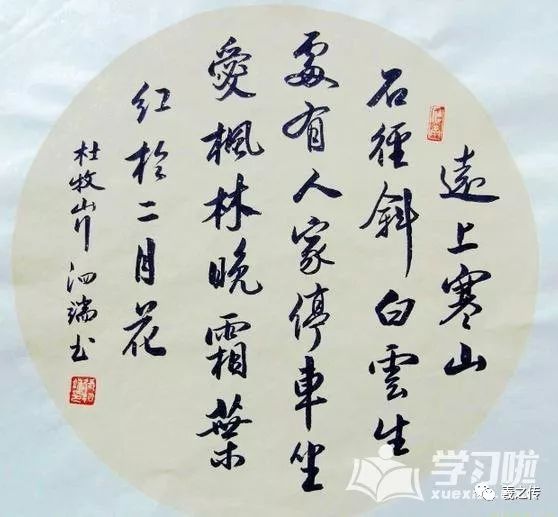 遠上寒山
石徑斜白雲生
處有人家停車坐
愛楓林晚霜葉
紅於二月花
杜牧山行 泗端书
学习啦
xuexila.com
羲之传